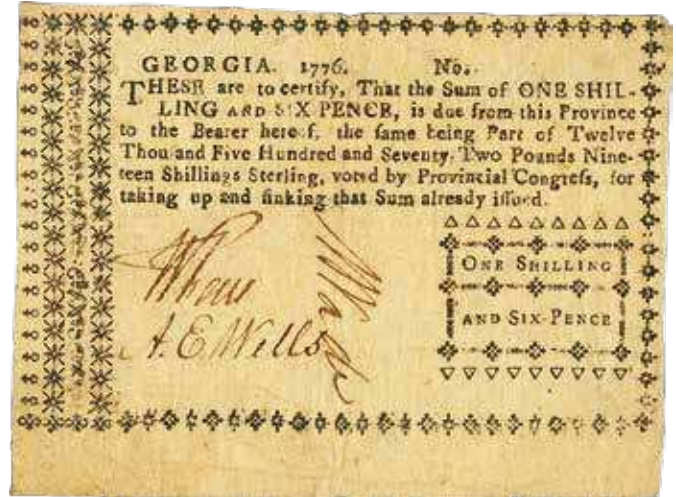 GEORGIA. 1776. No.
THESE are to certify, That the Sum of ONE SHIL-
LING AND SIX PENCE, is due from this Province
to the Bearer hereof, the same being Part of Twelve
Thousand Five Hundred and Seventy-Two Pounds Nine-
teen Shillings Sterling, voted by Provincial Congreſs, for
taking up and ſinking that Sum already iſſued.
ONE SHILLING
AND SIX-PENCE
A. E. Wells